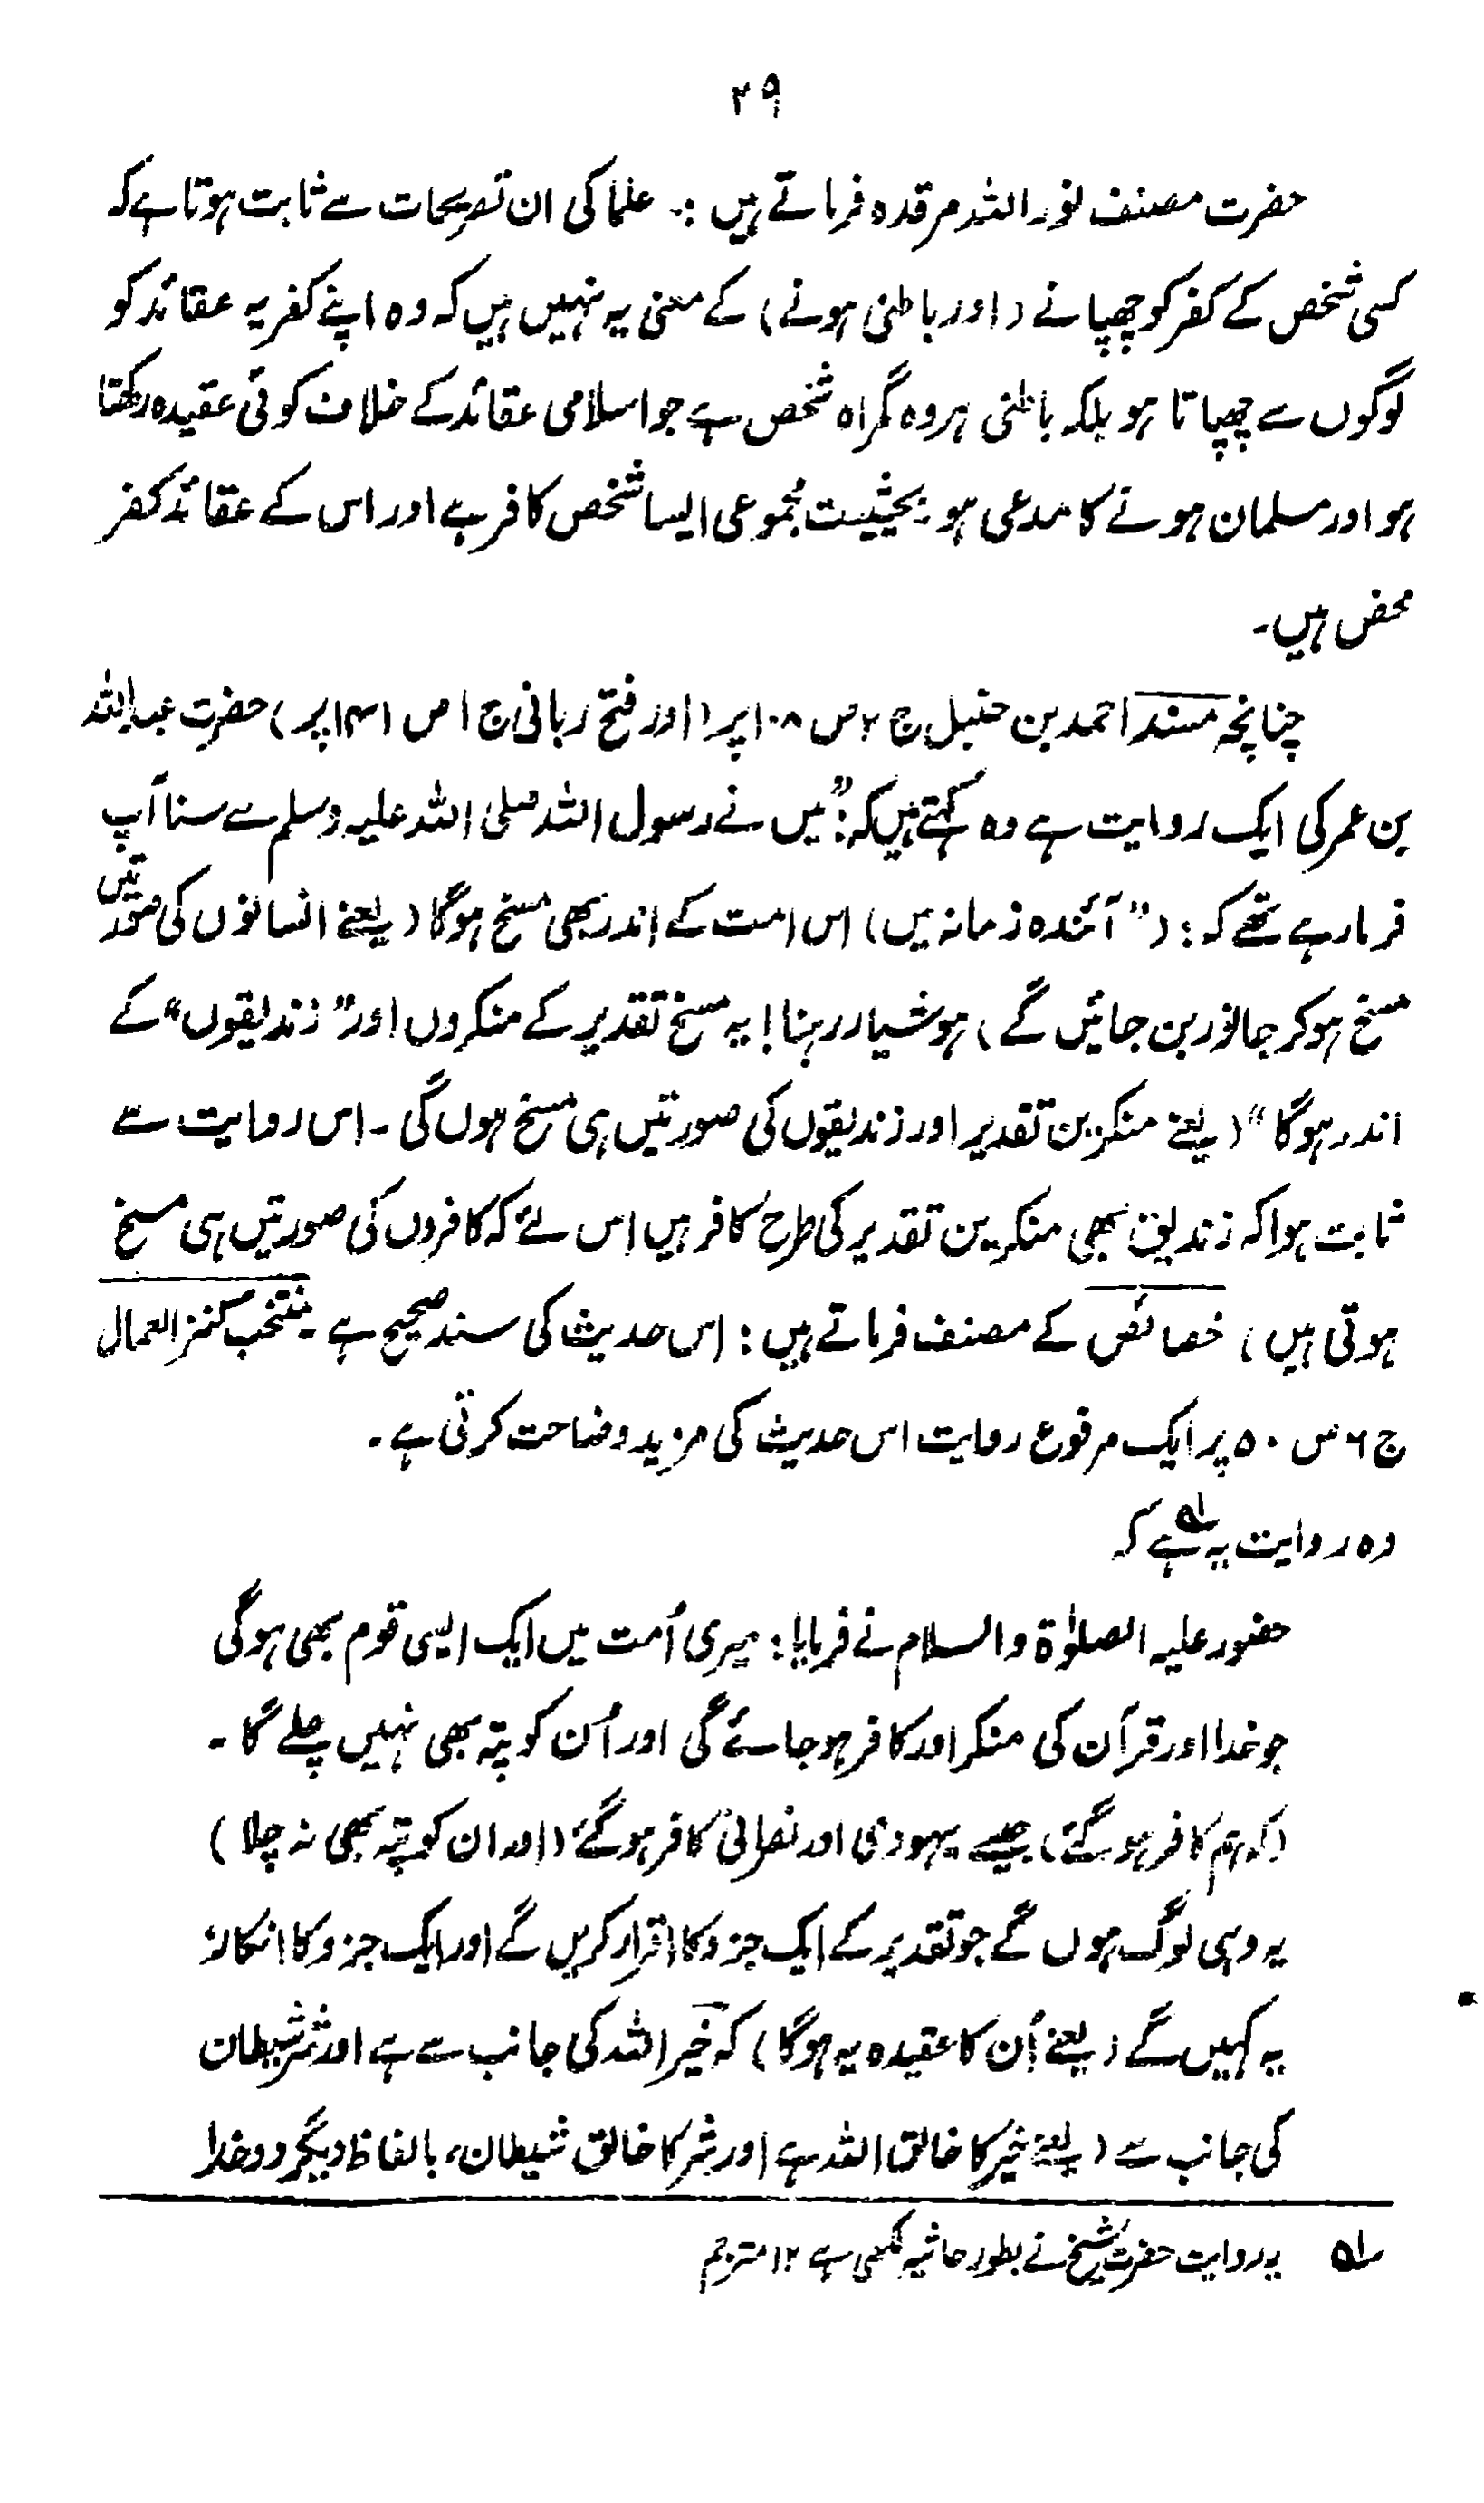 ۲۹
حضرت مصنف نور اللہ مرقدہ فرماتے ہیں :۔ علما کی ان تصریحات سے ثابت ہوتا ہے کہ
کسی شخص کے کفر کو چھپانے (اور باطنی ہونے) کے معنی یہ نہیں ہیں کہ وہ اپنے کفریہ عقائد کو
لوگوں سے چھپاتا ہو بلکہ باطنی ہر وہ گمراہ شخص ہے جو اسلامی عقائد کے خلاف کوئی عقیدہ رکھتا
ہو اور مسلمان ہونے کا مدعی ہو۔ بحیثیت مجموعی ایسا شخص کافر ہے اور اس کے عقائد کفر
محض ہیں۔
چنانچہ مسند احمد بن حنبل ج ۲ ص ۱۰۸ پر (اور فتح ربانی ج ۱ ص ۱۴۱ پر) حضرت عبداللہ
بن عمر کی ایک روایت ہے وہ کہتے ہیں کہ: ”میں نے رسول اللہ صلی اللہ علیہ وسلم سے سنا آپ
فرما رہے تھے کہ: (”آئندہ زمانہ میں) اس امت کے اندر بھی مسخ ہوگا (یعنے انسانوں کی صورتیں
مسخ ہو کر جانور بن جائیں گے) ہوشیار رہنا! یہ مسخ تقدیر کے منکروں اور ”زندیقوں“ کے
اندر ہوگا“ (یعنے منکرین تقدیر اور زندیقوں کی صورتیں ہی مسخ ہوں گی۔ اس روایت سے
ثابت ہوا کہ زندیق بھی منکرین تقدیر کی طرح کافر ہیں اس لئے کہ کافروں کی صورتیں ہی مسخ
ہوتی ہیں) خصائص کے مصنف فرماتے ہیں: اس حدیث کی سند صحیح ہے۔ منتخب کنز العمال
ج ۶ ص ۵۰ پر ایک مرفوع روایت اس حدیث کی مزید وضاحت کرتی ہے۔
وہ روایت یہ ہے ۱؎ کہ
حضور علیہ الصلوٰۃ والسلام نے فرمایا: میری اُمت میں ایک ایسی قوم بھی ہوگی
جو خدا اور قرآن کی منکر اور کافر ہو جائے گی اور اُن کو پتہ بھی نہیں چلے گا۔
(کہ ہم کافر ہو گئے) جیسے یہودی اور نصرانی کافر ہو گئے (اور ان کو پتہ بھی نہ چلا)
یہ وہی لوگ ہوں گے جو تقدیر کے ایک جزو کا اقرار کریں گے اور ایک جزو کا انکار:
یہ کہیں گے (یعنے اُن کا عقیدہ یہ ہوگا) کہ خیر اللہ کی جانب سے ہے اور شر شیطان
کی جانب سے (یعنے خیر کا خالق اللہ ہے اور شر کا خالق شیطان، بالفاظ دیگر دو خدا
۱؎ یہ روایت حضرت شیخ نے بطور حاشیہ لکھی ہے ۱۲ مترجم